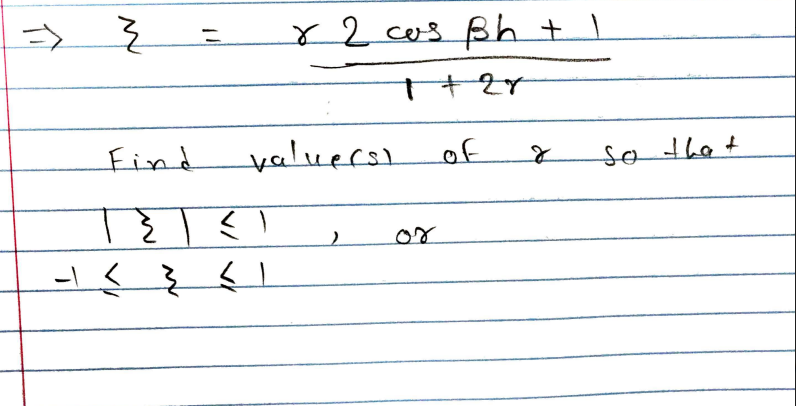 => ξ = r 2 cos βh + 1
1 + 2r
Find value(s) of r so that
|ξ| ≤ 1 , or
-1 ≤ ξ ≤ 1